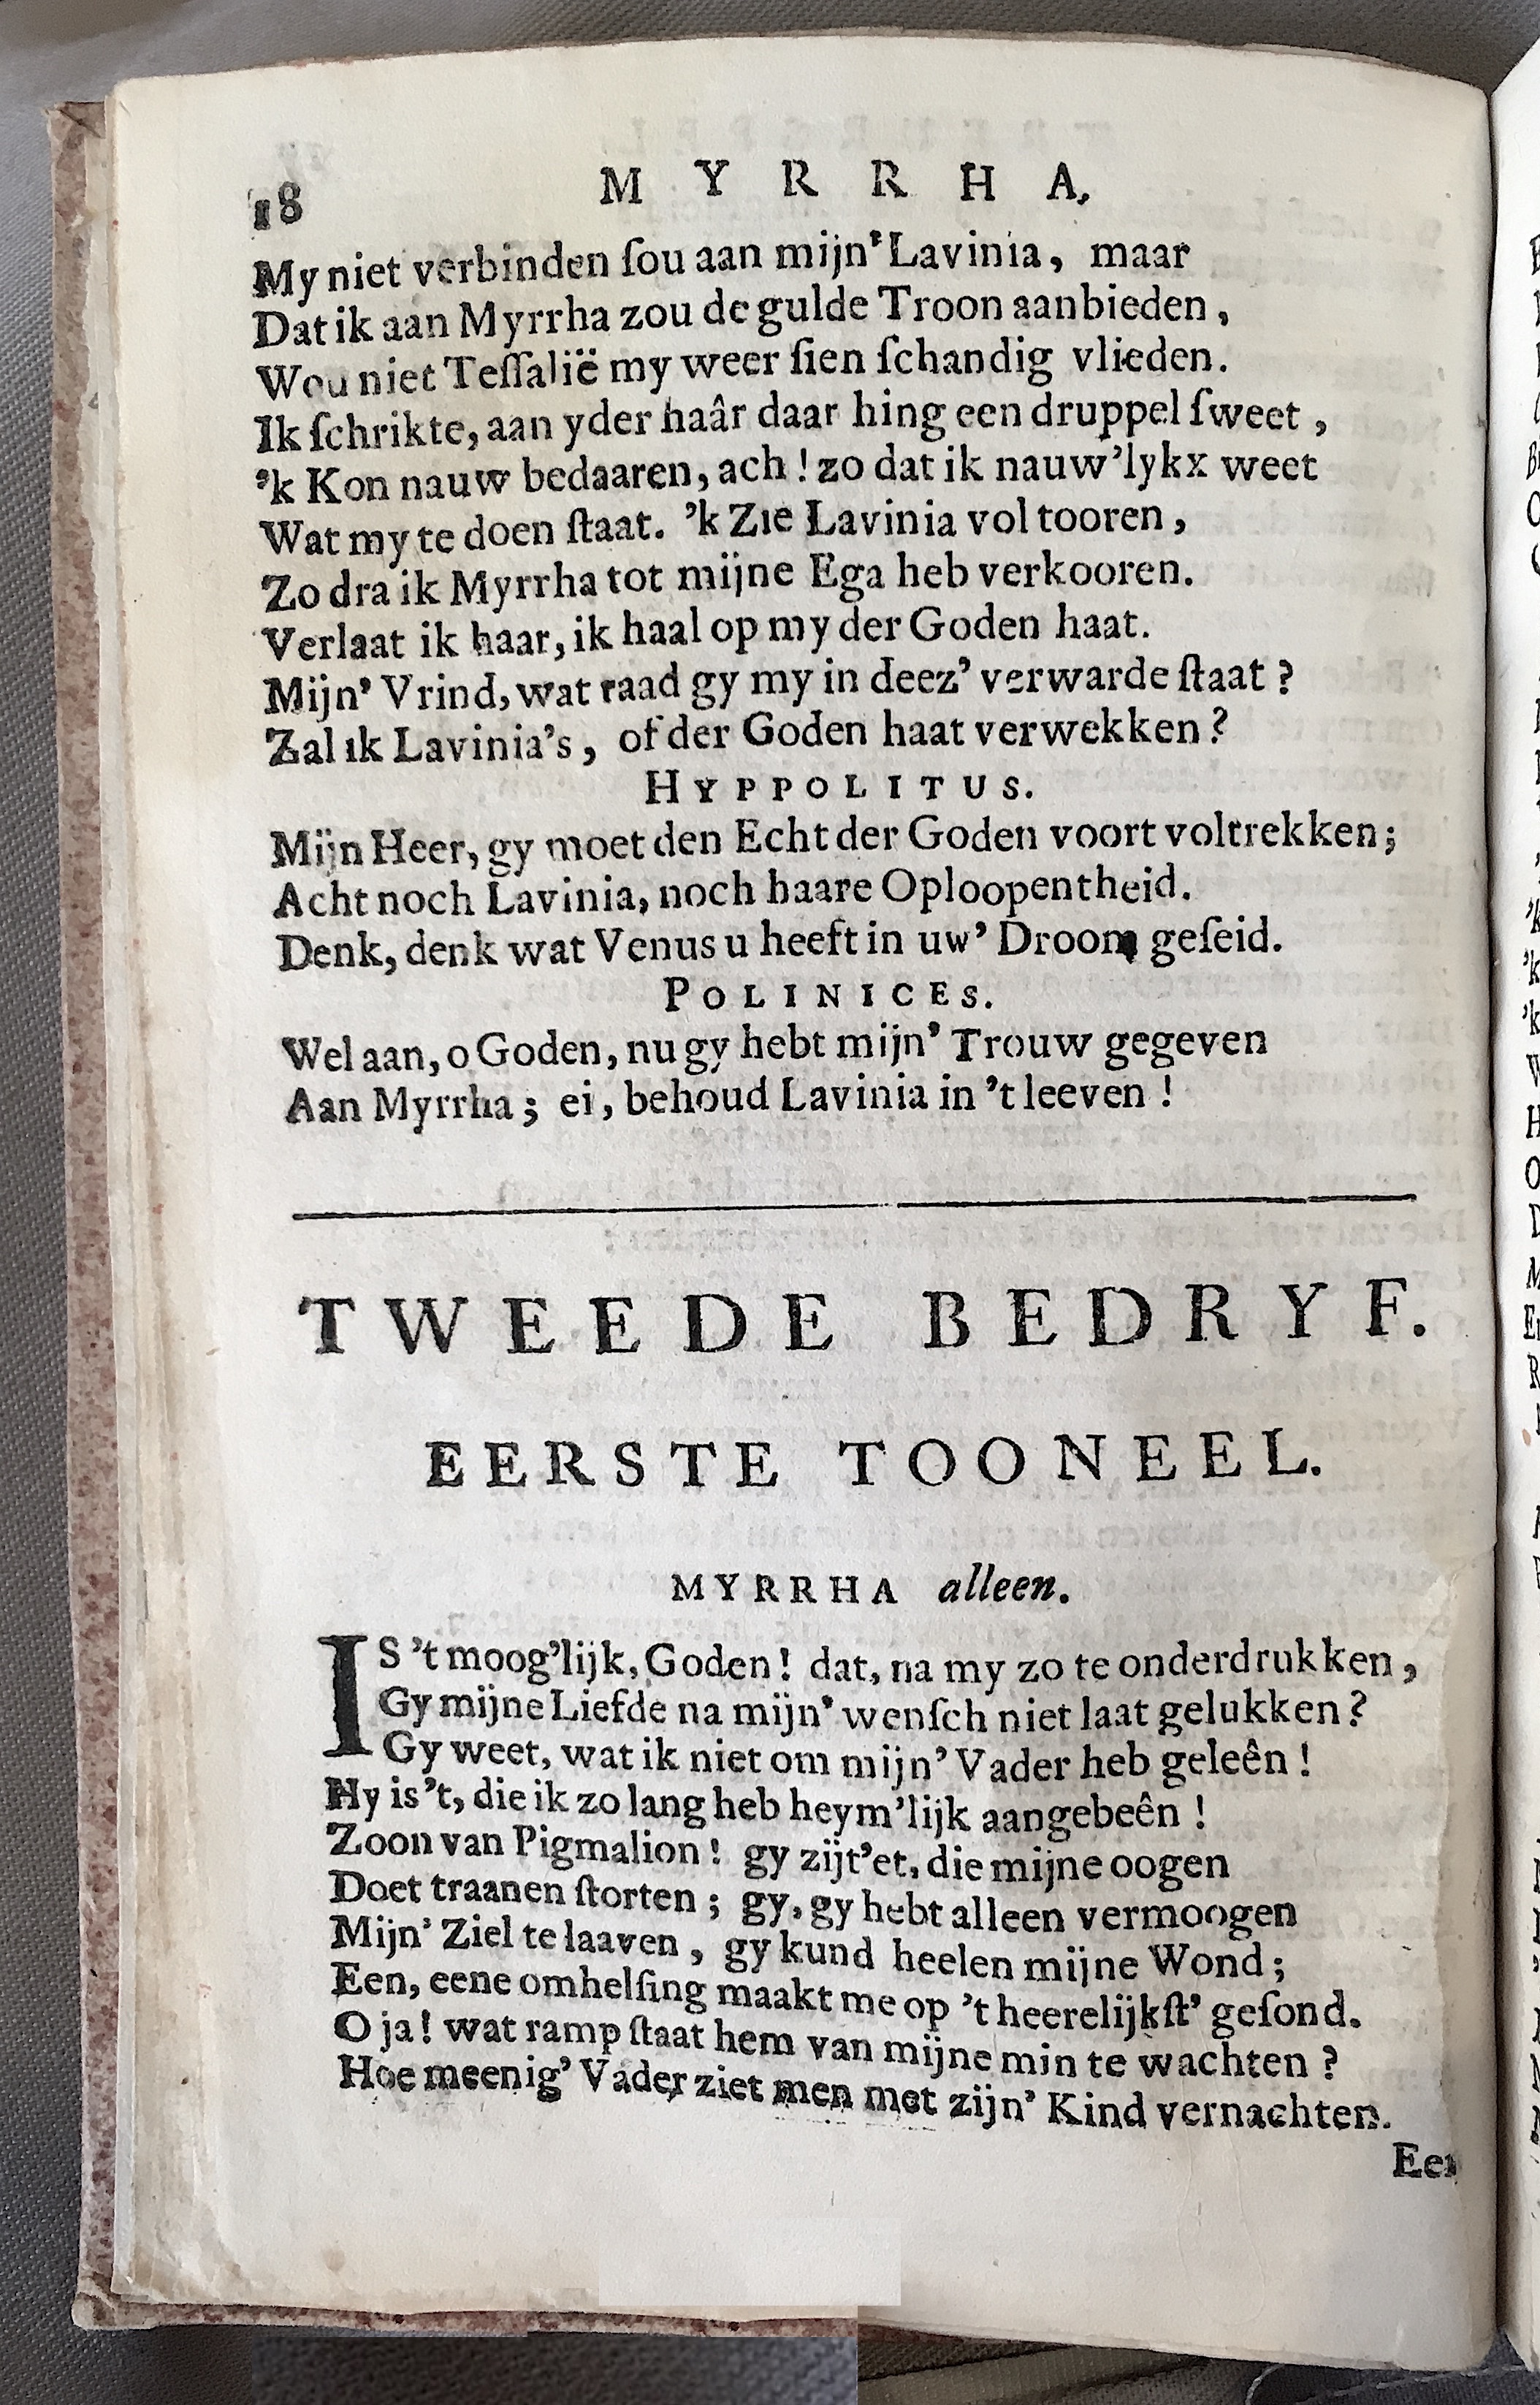 18 MYRRHA.
My niet verbinden ſou aan mijn' Lavinia, maar
Dat ik aan Myrrha zou de gulde Troon aanbieden,
Wou niet Teſſalië my weer ſien ſchandig vlieden.
Ik ſchrikte, aan yder haâr daar hing een druppel ſweet,
'k Kon nauw bedaaren, ach! zo dat ik nauw'lykx weet
Wat my te doen ſtaat. 'k Zie Lavinia vol tooren,
Zo dra ik Myrrha tot mijne Ega heb verkooren.
Verlaat ik haar, ik haal op my der Goden haat.
Mijn' Vrind, wat raad gy my in deez' verwarde ſtaat?
Zal ik Lavinia's, of der Goden haat verwekken?
HYPPOLITUS.
Mijn Heer, gy moet den Echt der Goden voort voltrekken;
Acht noch Lavinia, noch haare Oploopentheid.
Denk, denk wat Venus u heeft in uw' Droom geſeid.
POLINICES.
Wel aan, o Goden, nu gy hebt mijn' Trouw gegeven
Aan Myrrha; ei, behoud Lavinia in 't leeven!
TWEEDE BEDRYF.
EERSTE TOONEEL.
MYRRHA alleen.
IS 't moog'lijk, Goden! dat, na my zo te onderdrukken,
Gy mijne Liefde na mijn' wenſch niet laat gelukken?
Gy weet, wat ik niet om mijn' Vader heb geleên!
Hy is 't, die ik zo lang heb heym'lijk aangebeên!
Zoon van Pigmalion! gy zijt'et, die mijne oogen
Doet traanen ſtorten; gy, gy hebt alleen vermoogen
Mijn' Ziel te laaven, gy kund heelen mijne Wond;
Een, eene omhelſing maakt me op 't heerelijkſt' geſond.
O ja! wat ramp ſtaat hem van mijne min te wachten?
Hoe meenig' Vader ziet men met zijn' Kind vernachten.